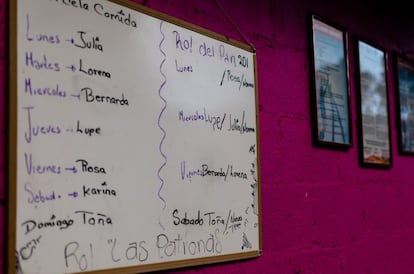 Comida
Lunes → Julia
Martes → Lorena
Miercoles → Bernarda
Jueves → Lupe
Viernes → Rosa
Sabad. → Karina
Domingo Toña
Rol "Las Patronas"
Rol Del Pan 201
Lunes
/Rosa/
Miercoles Lupe/ Julia/
Viernes Bernarda/Lorena
Sabado Toña/